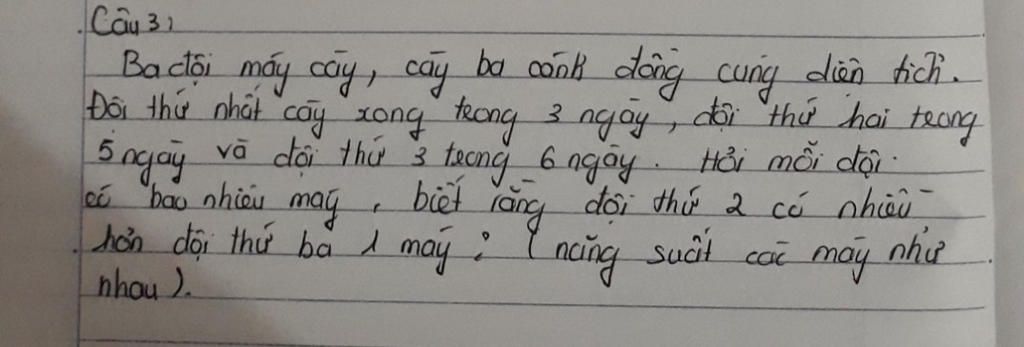 Câu 3:
Ba đội máy cày, cày ba cánh đồng cùng diện tích.
Đội thứ nhất cày xong trong 3 ngày, đội thứ hai trong
5 ngày và đội thứ 3 trong 6 ngày. Hỏi mỗi đội
có bao nhiêu máy, biết rằng đội thứ 2 có nhiều
hơn đội thứ ba 1 máy? (năng suất các máy như
nhau).